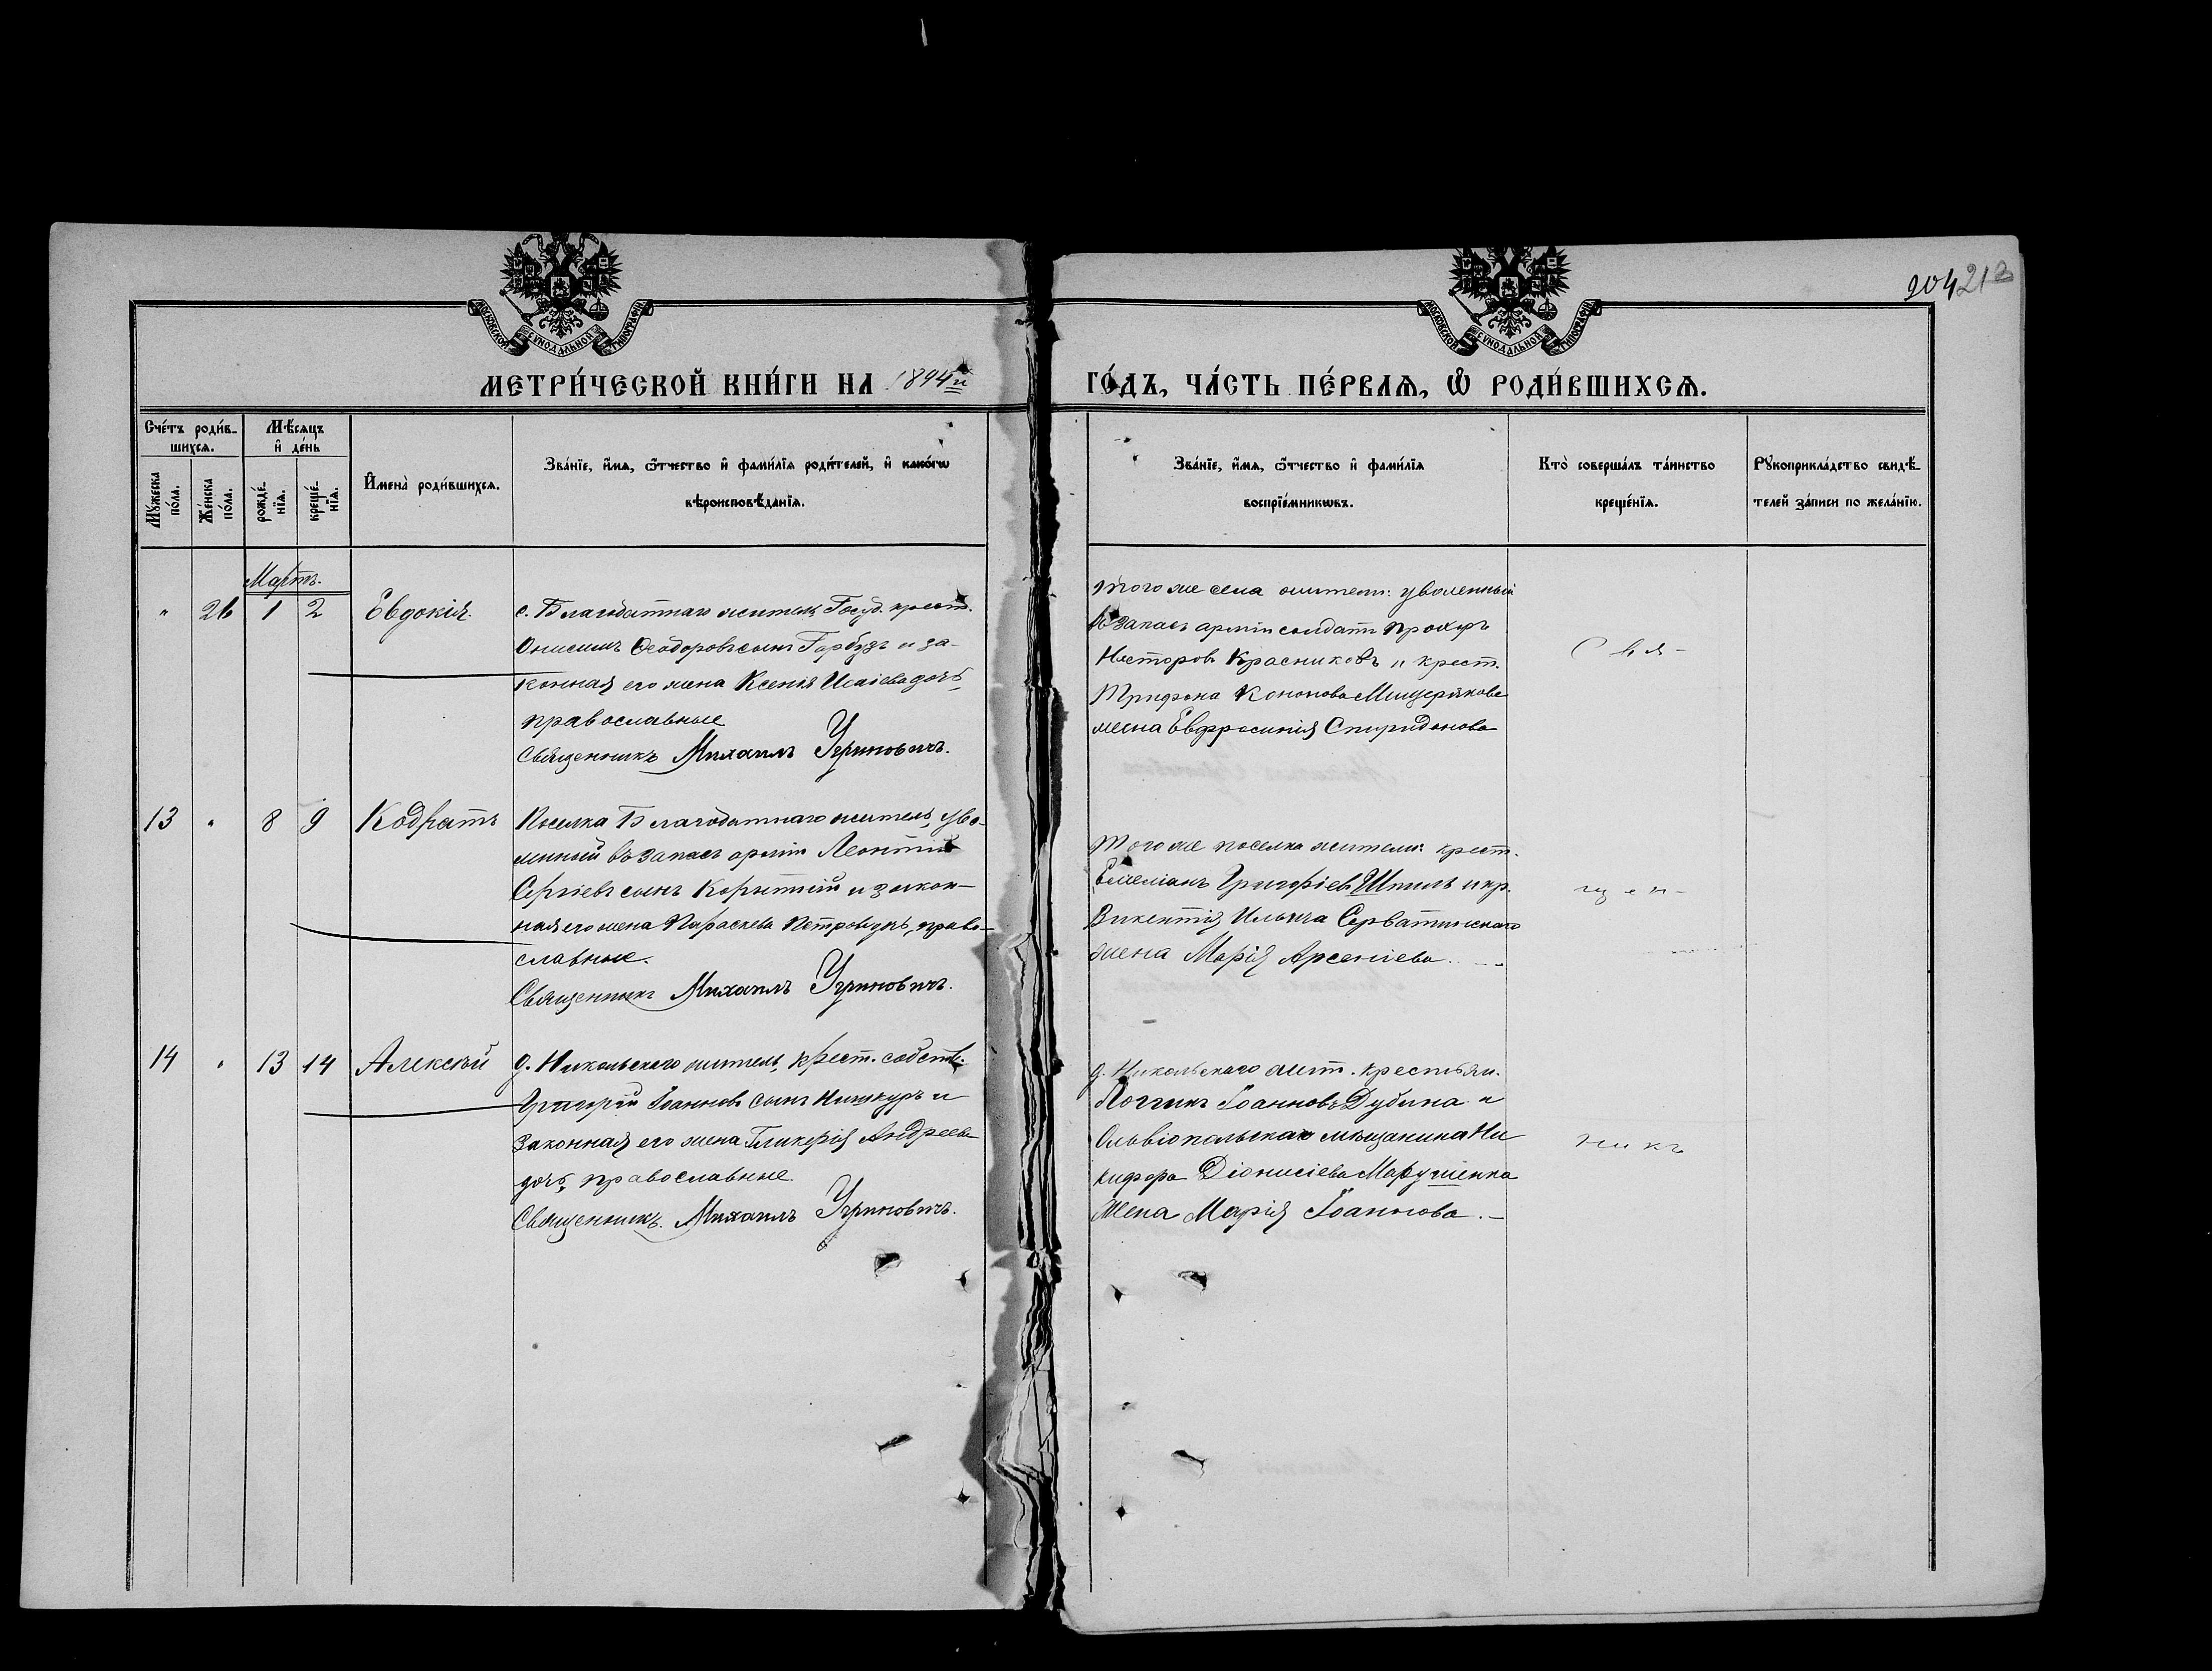 204 213
МОСКОВСКОЙ СѴНОДАЛЬНОЙ ТИПОГРАФІИ
МОСКОВСКОЙ СѴНОДАЛЬНОЙ ТИПОГРАФІИ
МЕТРИ́ЧЕСКОЙ КНИ́ГИ НА 1894й
ГО́ДЪ, ЧА́СТЬ ПЕ́РВАѦ, Ѿ РОДИ́ВШИХСѦ.
Сче́тъ роди́в-
шихсѧ.
Мѣ́сѧцъ
и҆ де́нь
Мꙋ́жеска по́ла.
Же́нска по́ла.
рожде́-нїѧ.
креще́-нїѧ.
И҆мена̀ роди́вшихсѧ.
Зва́нїе, и҆́мѧ, ѻ҆́тчество и҆ фами́лїѧ роди́телей, и҆ како́гѡ
вѣроисповѣ́данїѧ.
Зва́нїе, и҆́мѧ, ѻ҆́тчество и҆ фами́лїѧ
воспрїе́мникѡвъ.
Кто̀ соверша́лъ та́инство
креще́нїѧ.
Рꙋкоприкла́дство свидѣ́-
телей за́писи по жела́нїю.
Мартъ.
" 26 1 2 Евдокія.
с. Благодатнаго житель, Госуд. крест.
Онисимъ Ѳеодоровъ сынъ Гарбузъ и за-
конная его жена Ксенія Исаіева дочь,
православные
Священникъ Михаилъ Угриновичъ.
того же села жители: уволенный
въ запасъ арміи солдатъ Прохоръ
Несторовъ Красниковъ и крест.
Трифона Кононова Мищерякова
жена Евфросинія Спиридонова
Свя-
13 " 8 9 Кодратъ
Поселка Благодатнаго житель, уво-
лнный въ запасъ арміи Леонтій
Сергіевъ сынъ Корытній и закон-
ная его жена Параскева Петрова дочь, право-
славные.
Священникъ Михаилъ Угриновичъ.
Того же поселка жители: крест.
Емеліанъ Григоріевъ Шпиль и кр.
Викентія Ильича Серватинскаго
жена Марія Арсеніева. —
щен-
14 " 13 14 Алексѣй
д. Никольскаго житель, крест. собств.
Григорій Іоанновъ сынъ Нишкуръ и
законная его жена Гликерія Андреева
дочь, православные.
Священникъ. Михаилъ Угриновичъ.
д. Никольскаго жит. крестьян.
Логгинъ Іоанновъ Дубина и
Ольвіопольскаго мѣщанина Ни
кифора Діонисіева Марушенка
жена Марія Іоаннова. —
никъ